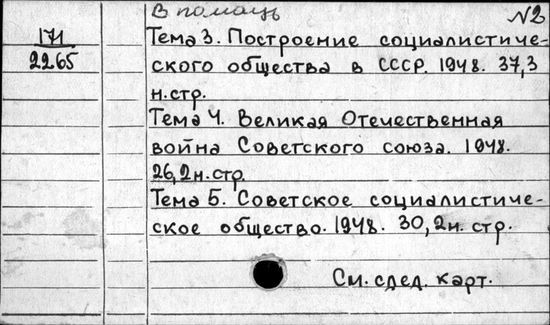 В помощь
№2
171
2265
Тема 3. Построение социалистиче-
ского общества в СССР. 1948. 37,3
н.стр.
Тема 4. Великая Отечественная
война Советского союза. 1948.
26,2н.стр.
Тема 5. Советское социалистиче-
ское общество. 1948. 30,2н. стр.
См. след. карт.